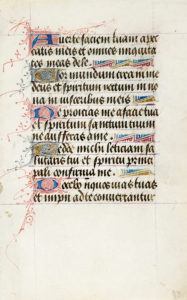 Averte faciem tuam a pec
catis meis et omnes iniquita
tes meas dele.
Cor mundum crea in me
deus et spiritum rectum in no
va in visceribus meis
Ne proicias me a facie tua
et spiritum sanctum tuum
ne auferas a me.
Redde michi leticiam sa
lutaris tui et spiritu princi
pali confirma me.
Docebo iniquos vias tuas
et impii ad te convertantur